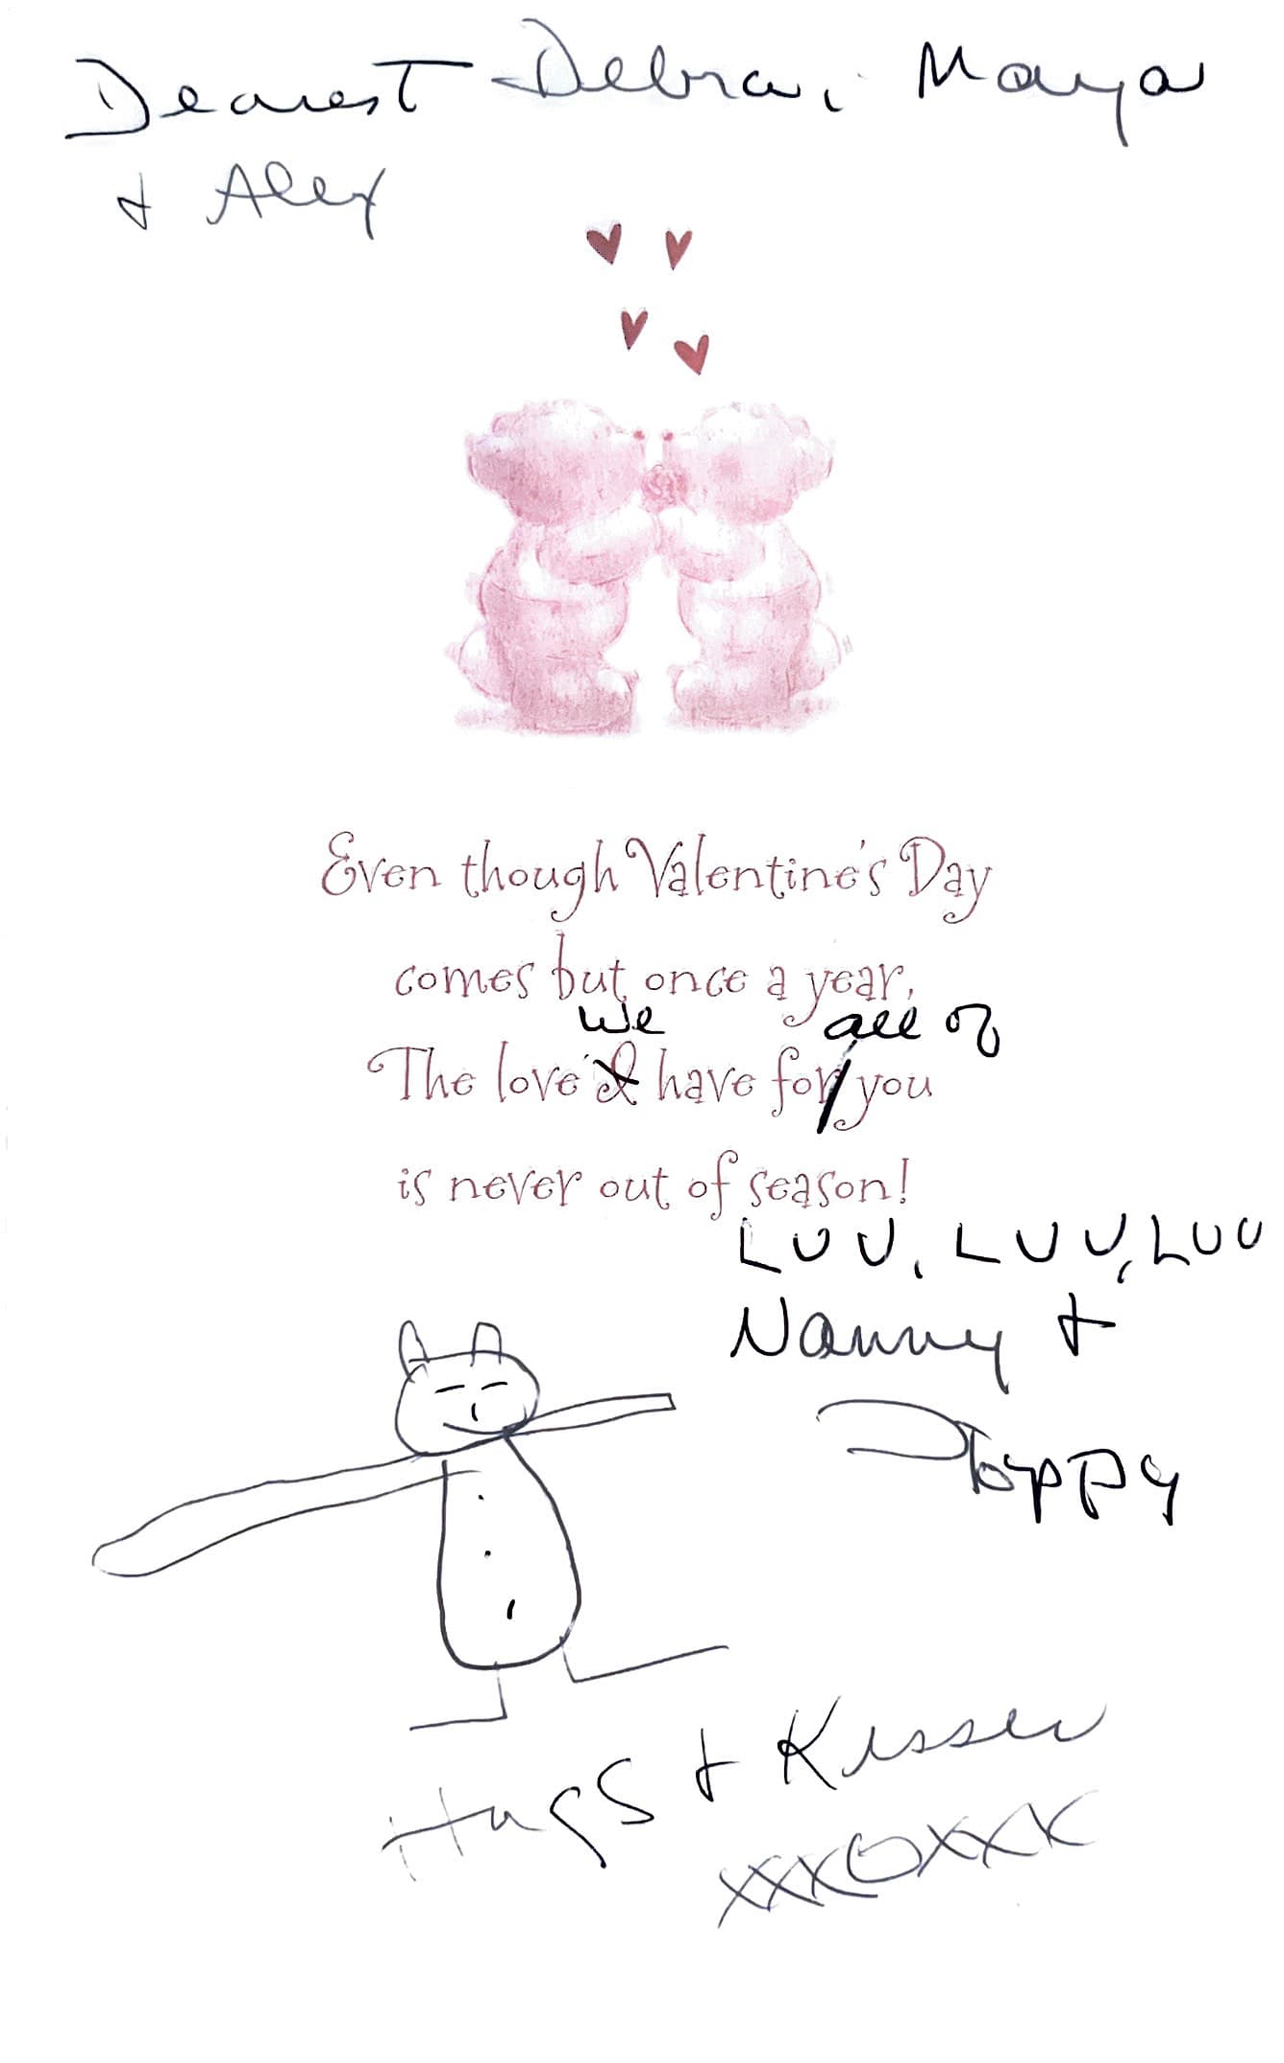 Dearest Debra, Maya
+ Alex
Even though Valentine's Day
comes but once a year,
we all of
The love I have for you
is never out of season!
LUV, LUV, LUV
Nanny +
Poppy
Hugs + Kisses
xxxOxxx